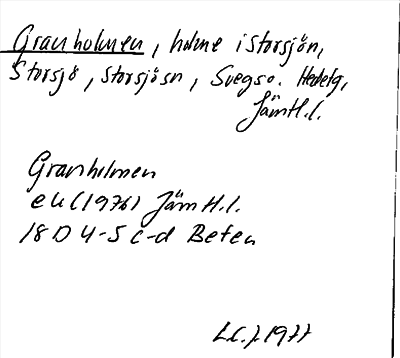 Granholmen, holme i Storsjön,
Storsjö, Storsjösn, Svegs o. Hedefg,
Jämtl.l.
Granholmen
ek (1976) Jämtl.l.
18 D 4-5 c-d Beten
L.C.J. 1977